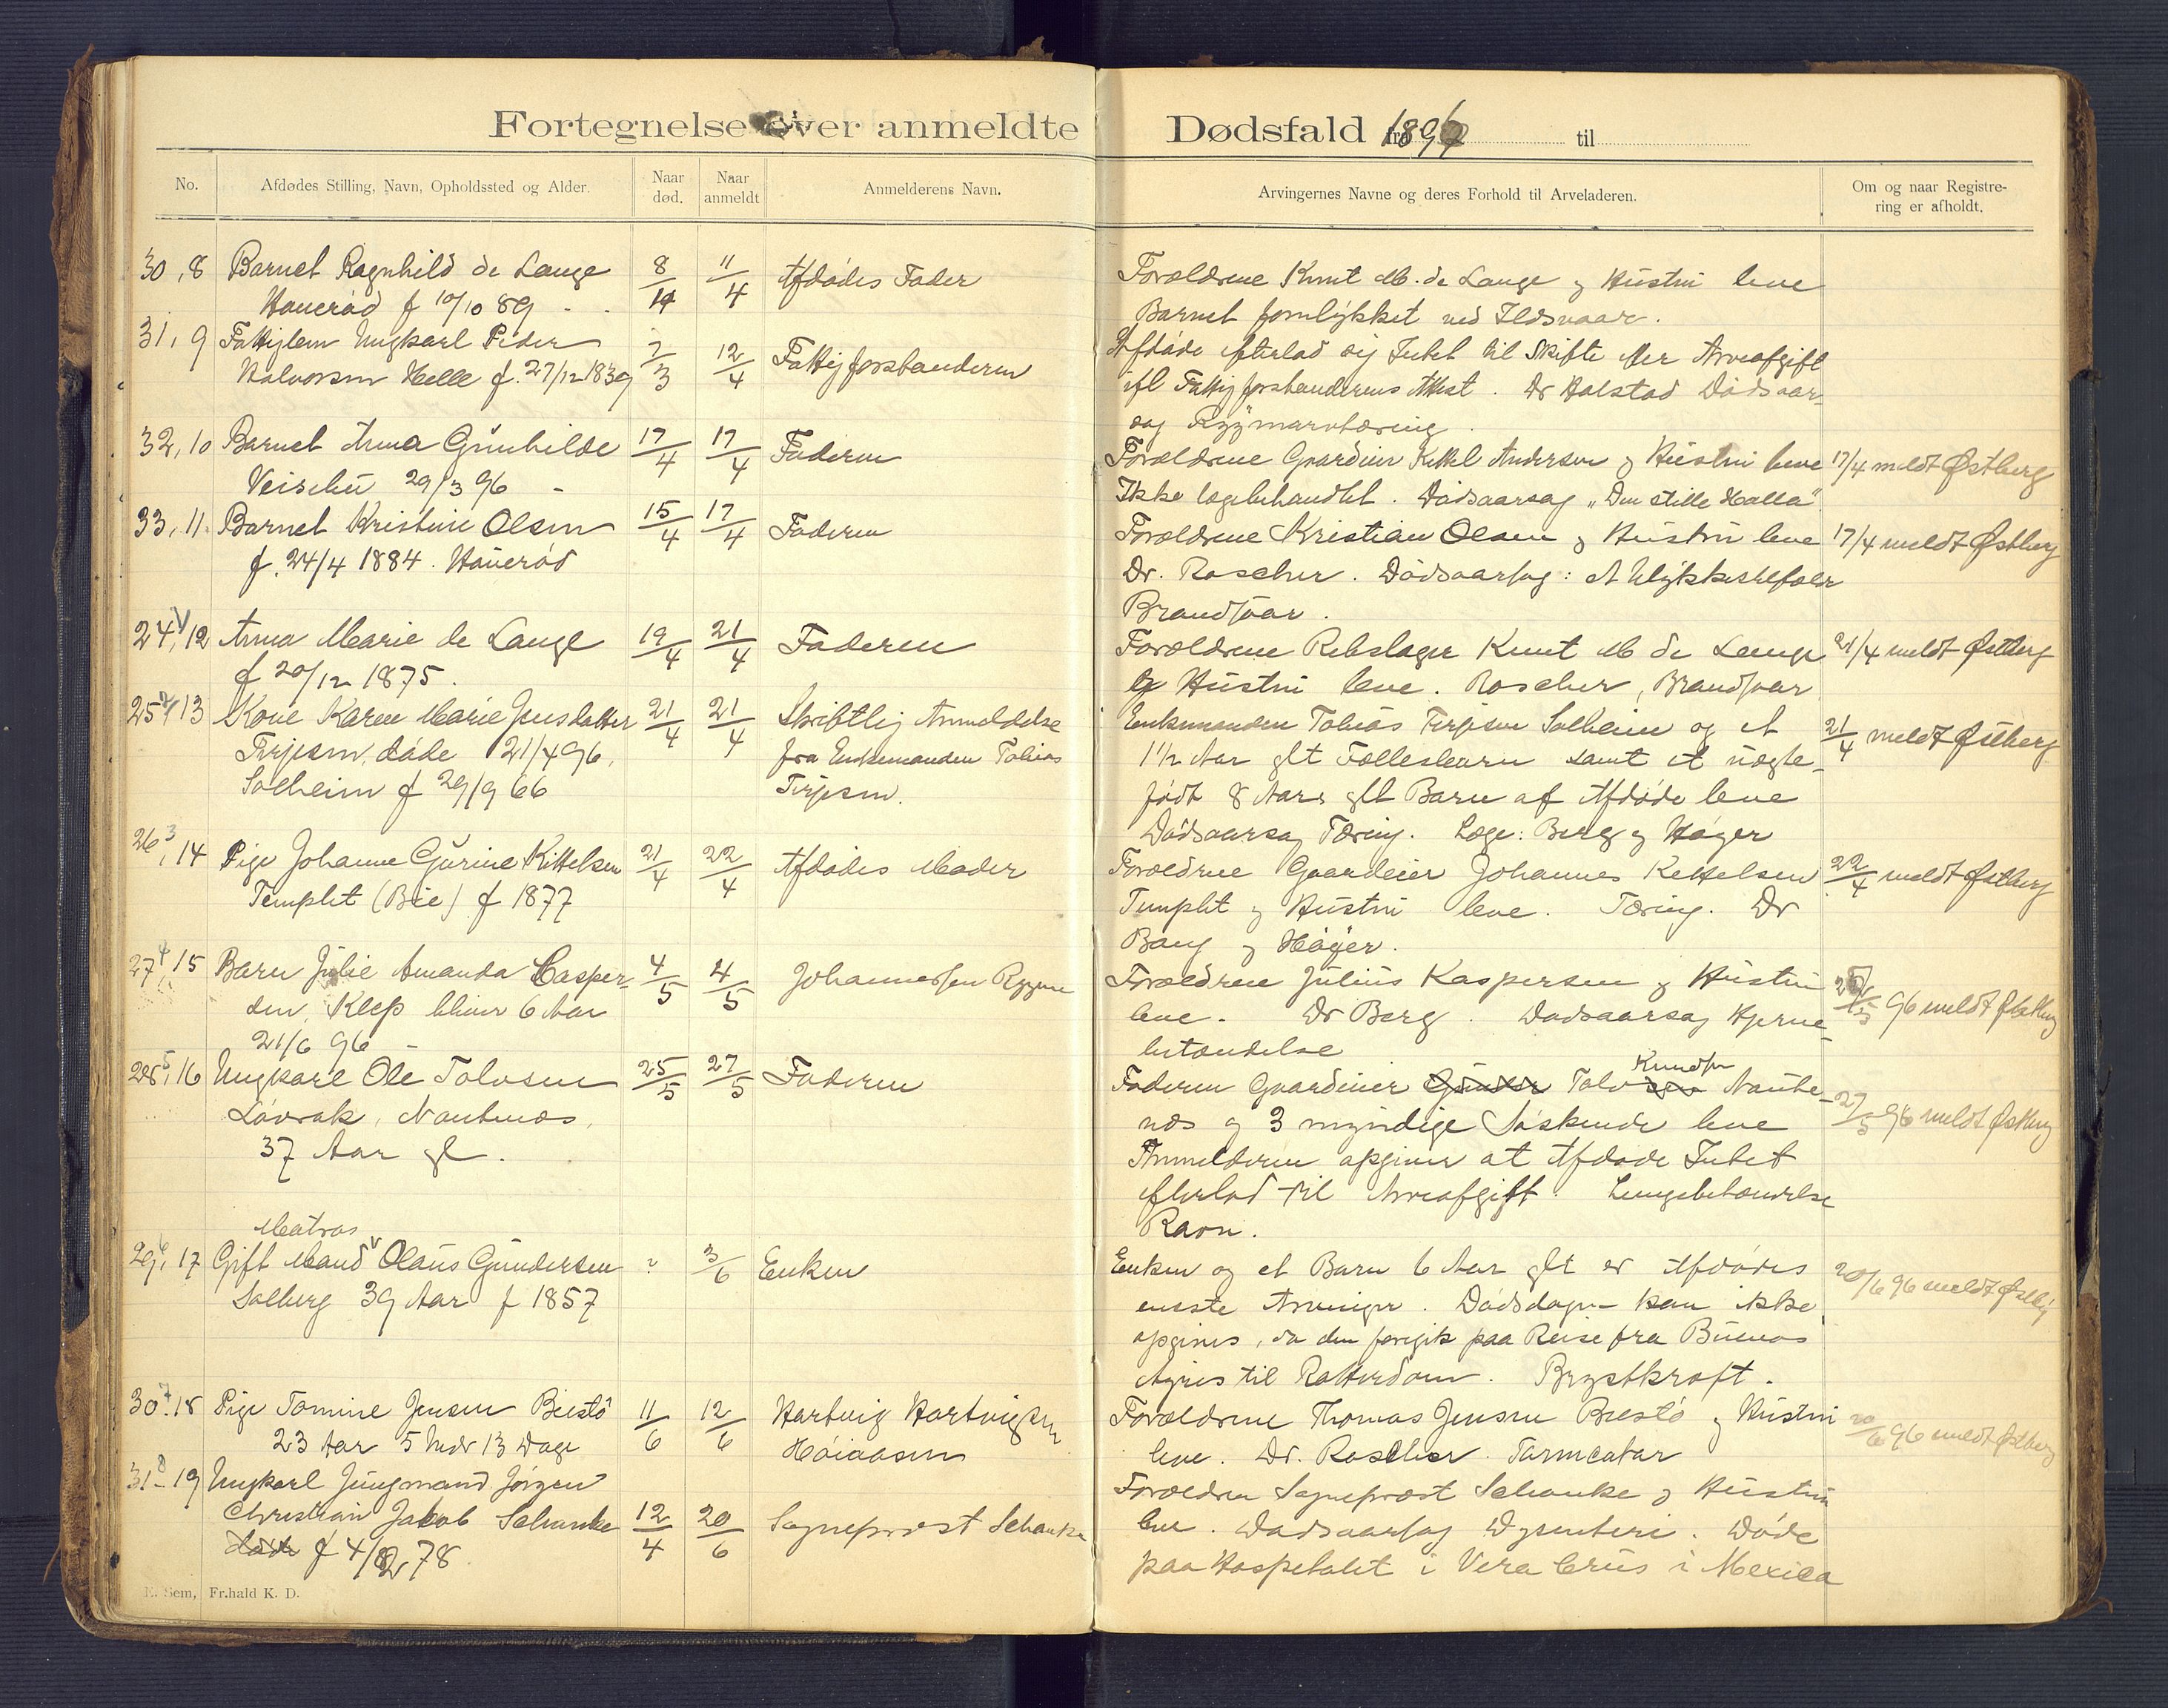 Fortegnelse over anmeldte Dødsfald fra 1896 til
No.
Afdødes Stilling, Navn, Opholdssted og Alder.
Naar død.
Naar anmeldt
Anmelderens Navn.
Arvingernes Navne og deres Forhold til Arveladeren.
Om og naar Registre-
ring er afholdt.
30, 8 Barnet Ragnhild de Lange 8/4 11/4 Afdødes Fader
Hauerød f 10/10 89
Forældrene Knut M. de Lange & Hustru leve
Barnet forulykket ved Ildsvaade.
31, 9 Fattiglem Ungkarl Peder 7/3 12/4 Fattigforstanderen
Halvorsen Helle f. 27/12 1839
Afdøde efterlod sig Intet til Skifte eller Arveafgift
ifl Fattigforstanderens Attest. Dr Halstad Dødsaar-
sag Rygmarvtæring.
32, 10 Barnet Anna Gunhilde 17/4 17/4 Faderen
29/3 96 -
Forældrene Gaardeier Kittel Andersen & Hustru leve 17/4 meldt Østberg
Ikke lægebehandlet. Dødsaarsag „Den stille Halla"
33, 11. Barnet Kristine Olsen 15/4 17/4 Faderen
f. 24/4 1884. Hauerød
Forældrene Kristian Olsen & Hustru leve 17/4 meldt Østberg
Dr. Roscher. Dødsaarsag: et Ulykkestilfælde
Brandsaar.
24, 12 Anna Marie de Lange 19/4 21/4 Faderen
f 20/12 1875.
Forældrene Rebslager Knut M de Lange 21/4 meldt Østberg
og Hustru leve. Roscher, Brandsaar
25, 13 Kone Karen Marie Jensdatter 21/4 21/4 Skriftlig Anmeldelse
Terjesen, døde 21/4 96, fra Enkemanden Tobias
Solheim f 29/9 66 Terjesen.
Enkemanden Tobias Terjesen Solheim og et 21/4 meldt Østberg
1 1/2 Aar glt Fællesbarn samt et uægte-
født 8 Aars glt Barn af Afdøde leve
Dødsaarsag Tæring. Læge: Berg & Høyer
26, 14 Pige Johanne Gurine Kittelsen 21/4 22/4 Afdødes Moder
Templet (Bie) f 1877
Forældrene Gaardeier Johannes Kettelsen 22/4 meldt Østberg
Templet & Hustru leve. Tæring. Dr
Bang & Høyer.
27, 15 Barn Julie Amanda Casper- 4/5 4/5 Johannessen
sen, Klep bliver 6 Aar
21/6 96 -
Forældrene Julius Kaspersen & Hustru 96 meldt Østberg
leve. Dr Berg. Dødsaarsag Hjerne-
betændelse
28, 16 Ungkarl Ole Tolvsen 25/5 27/5 Faderen
Løvrak, Nautenæs,
37 Aar gl.
Knudsen
Faderen Gaardeier Gunder Tolvsen Naute- 27/5 96 meldt Østberg
næs & 3 myndige Søskende leve
Anmelderen opgiver at Afdøde Intet
efterlod til Arveafgift. Lungebetændelse
Ravn.
Matros
29, 17 Gift Mand Olaus Gundersen ? 3/6 Enken
Solberg 39 Aar f 1857
Enken og et Barn 6 Aar glt er Afdødes 20/6 96 meldt Østberg
eneste Arvinger. Dødsdagen kan ikke
opgives, da den foregik paa Reise fra Buenos
Ayres til Rotterdam. Brystkræft.
30, 18 Pige Tomine Jensen Buestø 11/6 12/6 Hartvig Hartvigsen
23 Aar 5 Mdr 13 Dage Høiaasen
Forældrene Thomas Jensen Buestø & Hustru 20/6 96 meldt Østberg
leve. Dr. Roscher. Tarmcatar
31 - 19 Ungkarl Jungmand Jørgen
Christian Jakob Schanke 12/4 20/6 Sogneprest Schanke
døde f 4/ 78
Forældren Sogneprest Schanke & Hustru
leve. Dødsaarsag Dysenteri. Døde
paa Hospitalet i Vera Crus i Mexico
E. Sem, Fr.hald K. D.